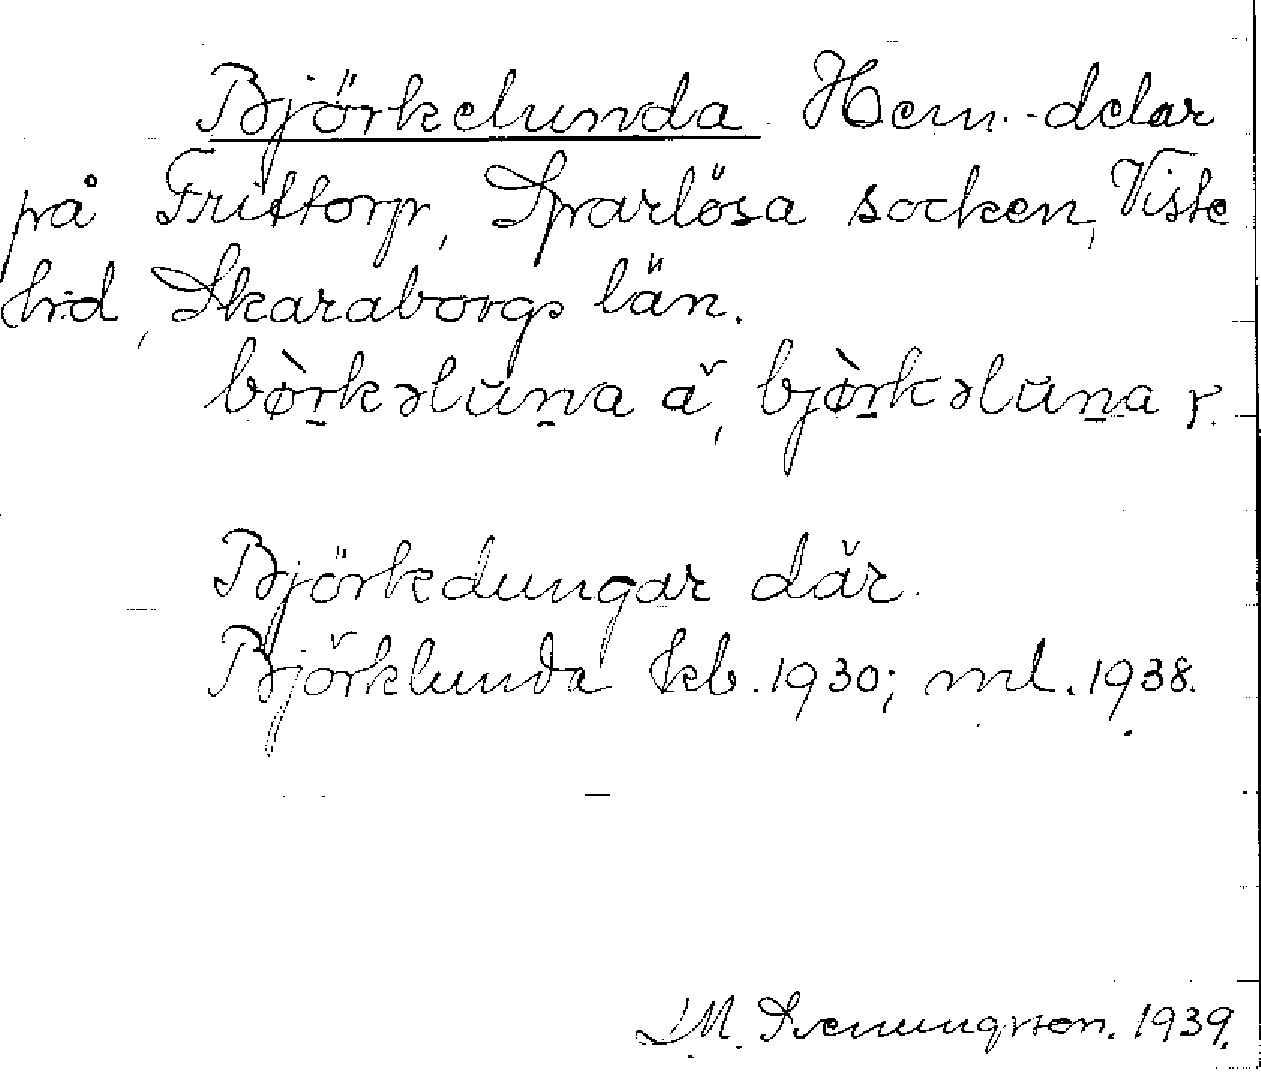 Björkelunda Hem.-delar
på Frittorp, Sparlösa socken, Viste
hrd, Skaraborgs län.
bø̀rkəluna ă, bjø̀rkəluna r.
Björkedungar där.
Björklunda kb. 1930; ml. 1938.
M. Svenungsson. 1939.